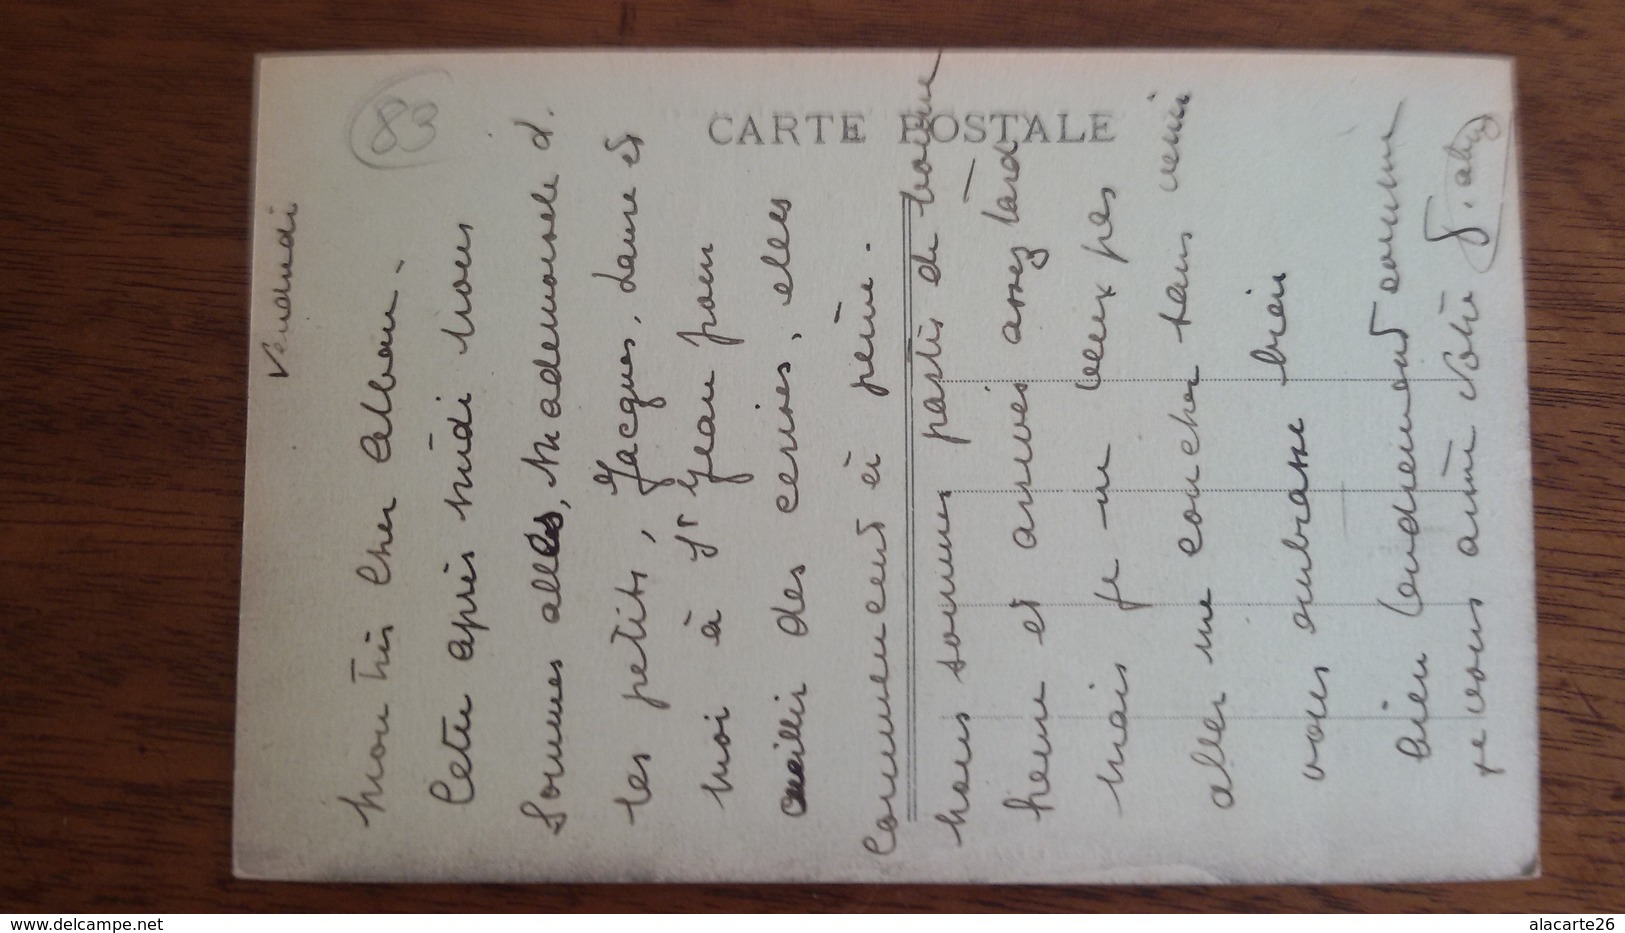 83
CARTE POSTALE
Vendredi
Mon très cher Alban.
Cette après midi nous
sommes allés, Mademoiselle d.
les petits, Jacques, Laure et
moi à St Jean pour
cueillir des cerises, elles
commencent à peine.
nous sommes partis de bonne
heure et arrivés assez tard
mais je ne veux pas
aller me coucher sans venir
vous embrasser bien
bien tendrement comme
je vous aime votre
delcampe.net
alacarte26